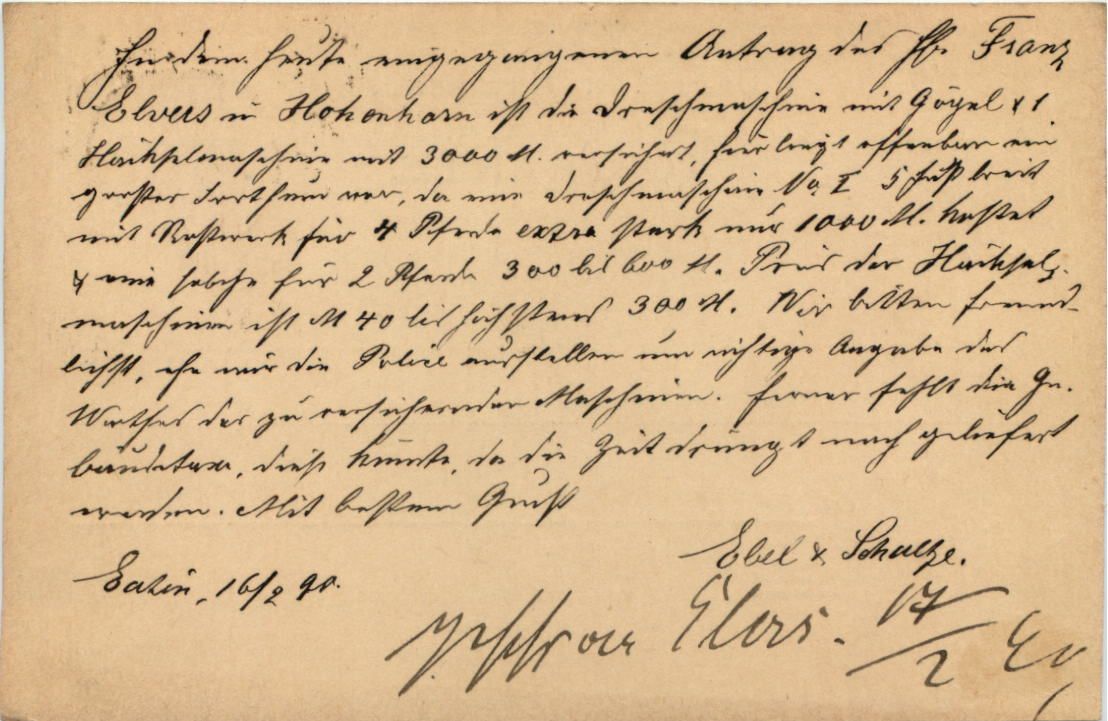 In dem heute eingegangenen Antrag des Hr. Franz
Elvers in Hohenhorn ist die Dreschmaschine mit Göpel & 1
Häckselmaschine mit 3000 M. versichert, hier liegt offenbar ein
grosser Irrthum vor, da eine Dreschmaschine No. I 5 Fuß breit
mit Rosswerk für 4 Pferde extra stark nur 1000 M. kostet
& eine solche für 2 Pferde 300 bis 600 M. Preis der Häcksel-
maschinen ist M 40 bis höchstens 300 M. Wir bitten freund-
lichst, ehe wir die Police ausstellen um richtige Angabe des
Werthes der zu versichernden Maschinen. Ferner fehlt die Ge-
bäudetaxe, diese könnte, da die Zeit drängt nach geliefert
werden. Mit bestem Gruß
Ebel & Schultze.
Eutin, 16/2 90.
an Elvers. 17/2